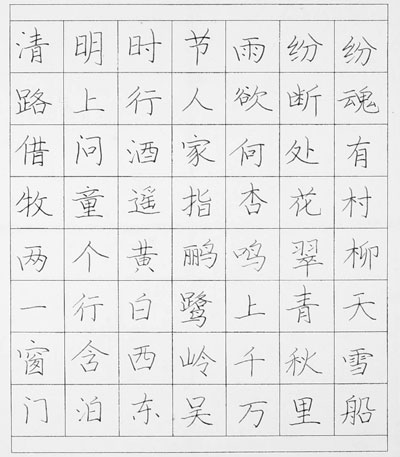 清明时节雨纷纷
路上行人欲断魂
借问酒家何处有
牧童遥指杏花村
两个黄鹂鸣翠柳
一行白鹭上青天
窗含西岭千秋雪
门泊东吴万里船